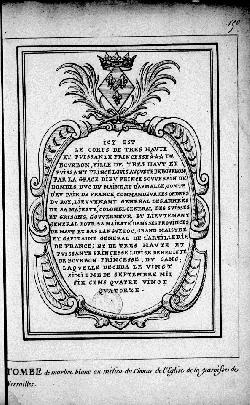 ICY EST
LE CORPS DE TRES HAUTE
ET PUISSANTE PRINCESSE DE
BOURBON, FILLE DE TRES HAUT ET
PUISSANT PRINCE LOUIS AUGUSTE DE BOURBON,
PAR LA GRACE DIEU PRINCE SOUVERAIN DE
DOMBES DUC DU MAINE ET D'AUMALE, COMTE
D'EU PAIR DE FRANCE, COMMANDEUR DES ORDRES
DU ROY, LIEUTENANT GENERAL DES ARMEES
DE SA MAJESTÉ, COLONEL GENERAL DES SUISSES
ET GRISONS, GOUVERNEUR ET LIEUTENANT
GENERAL POUR SA MAJESTÉ DANS SES PROVINCES
DE HAUT ET BAS LANGUEDOC, GRAND MAISTRE
ET CAPITAINE GENERAL DE L'ARTILLERIE
DE FRANCE; ET DE TRES HAUTE ET
PUISSANTE PRINCESSE LOUISE BENEDICTE
DE BOURBON PRINCESSE DU SANG,
LAQUELLE DECEDA LE VINGT
SIXIEME DE SEPTEMBRE MIL
SIX CENS QUATRE VINGT
QUATORZE.
TOMBE de marbre blanc au milieu du Choeur de l'Eglise de la paroisse de
Versailles.